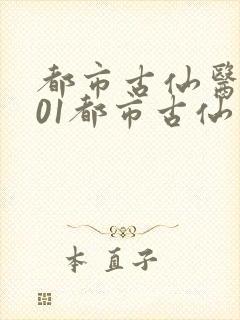 都市古仙醫
01都市古仙
本直子